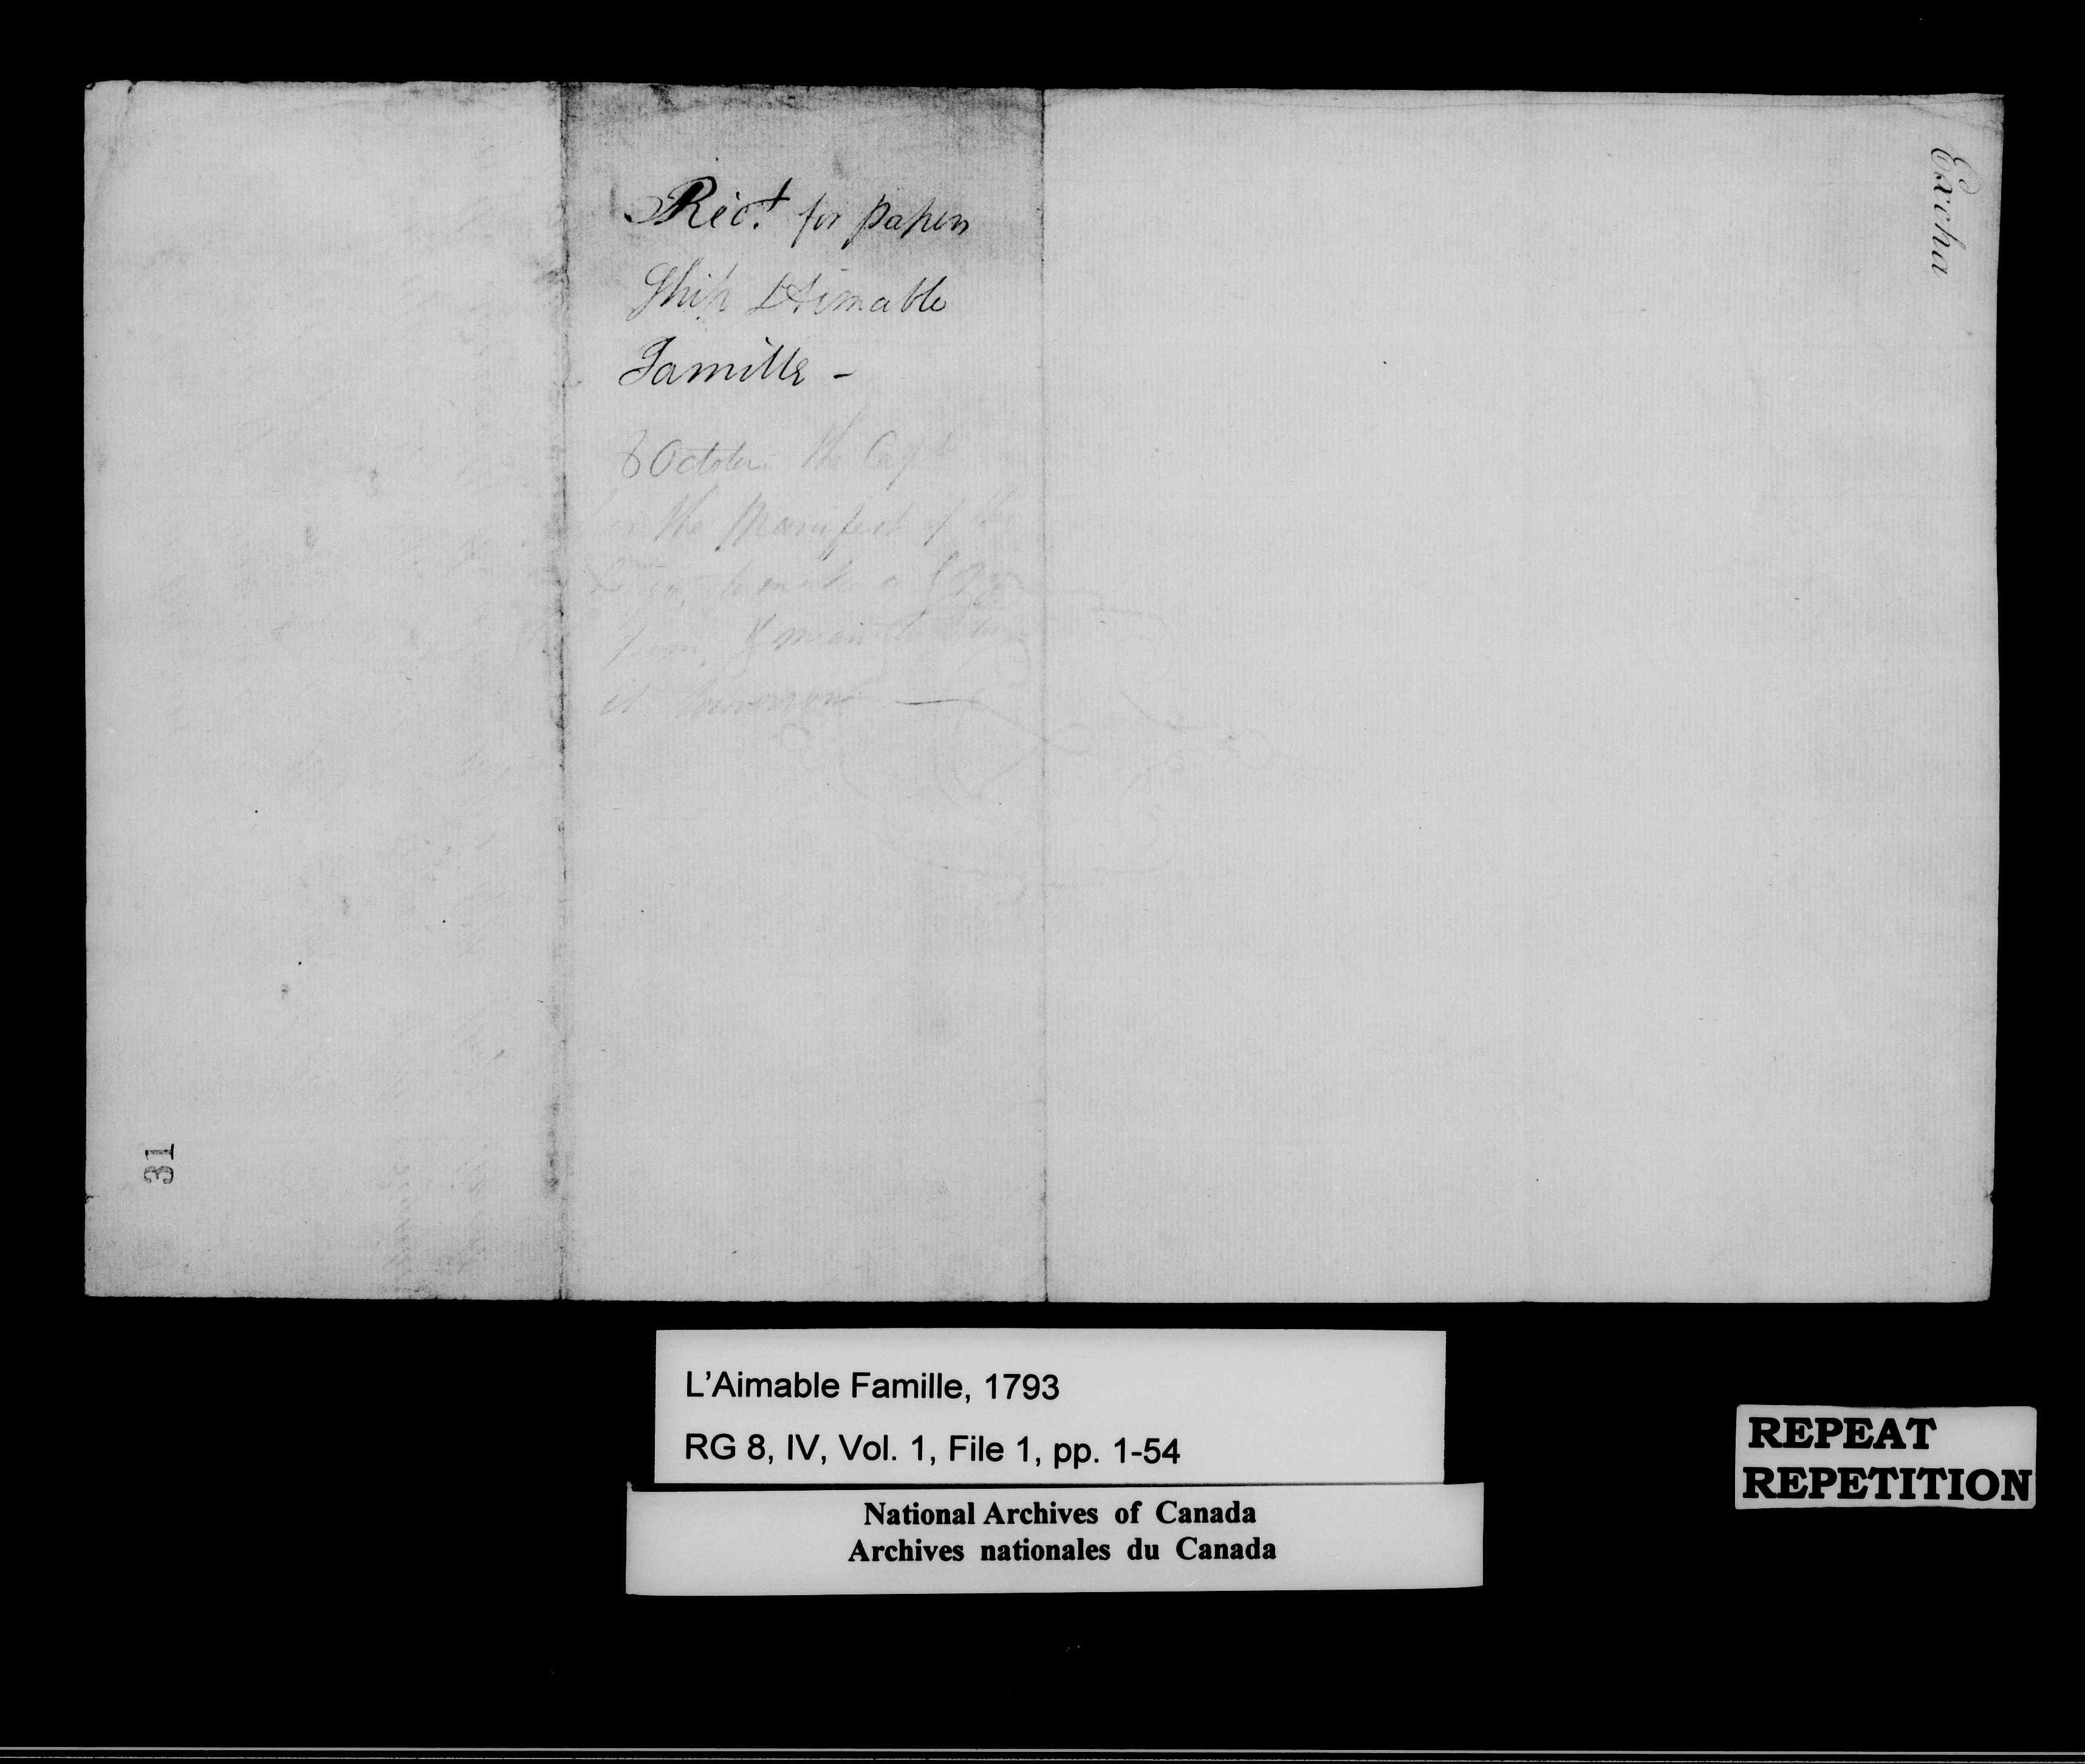 Rect. for papers
Ship L'Aimable
Famille -
8 October the Capt
the Manifest of the
it
Excha
31
L'Aimable Famille, 1793
RG 8, IV, Vol. 1, File 1, pp. 1-54
National Archives of Canada
Archives nationales du Canada
REPEAT
REPETITION